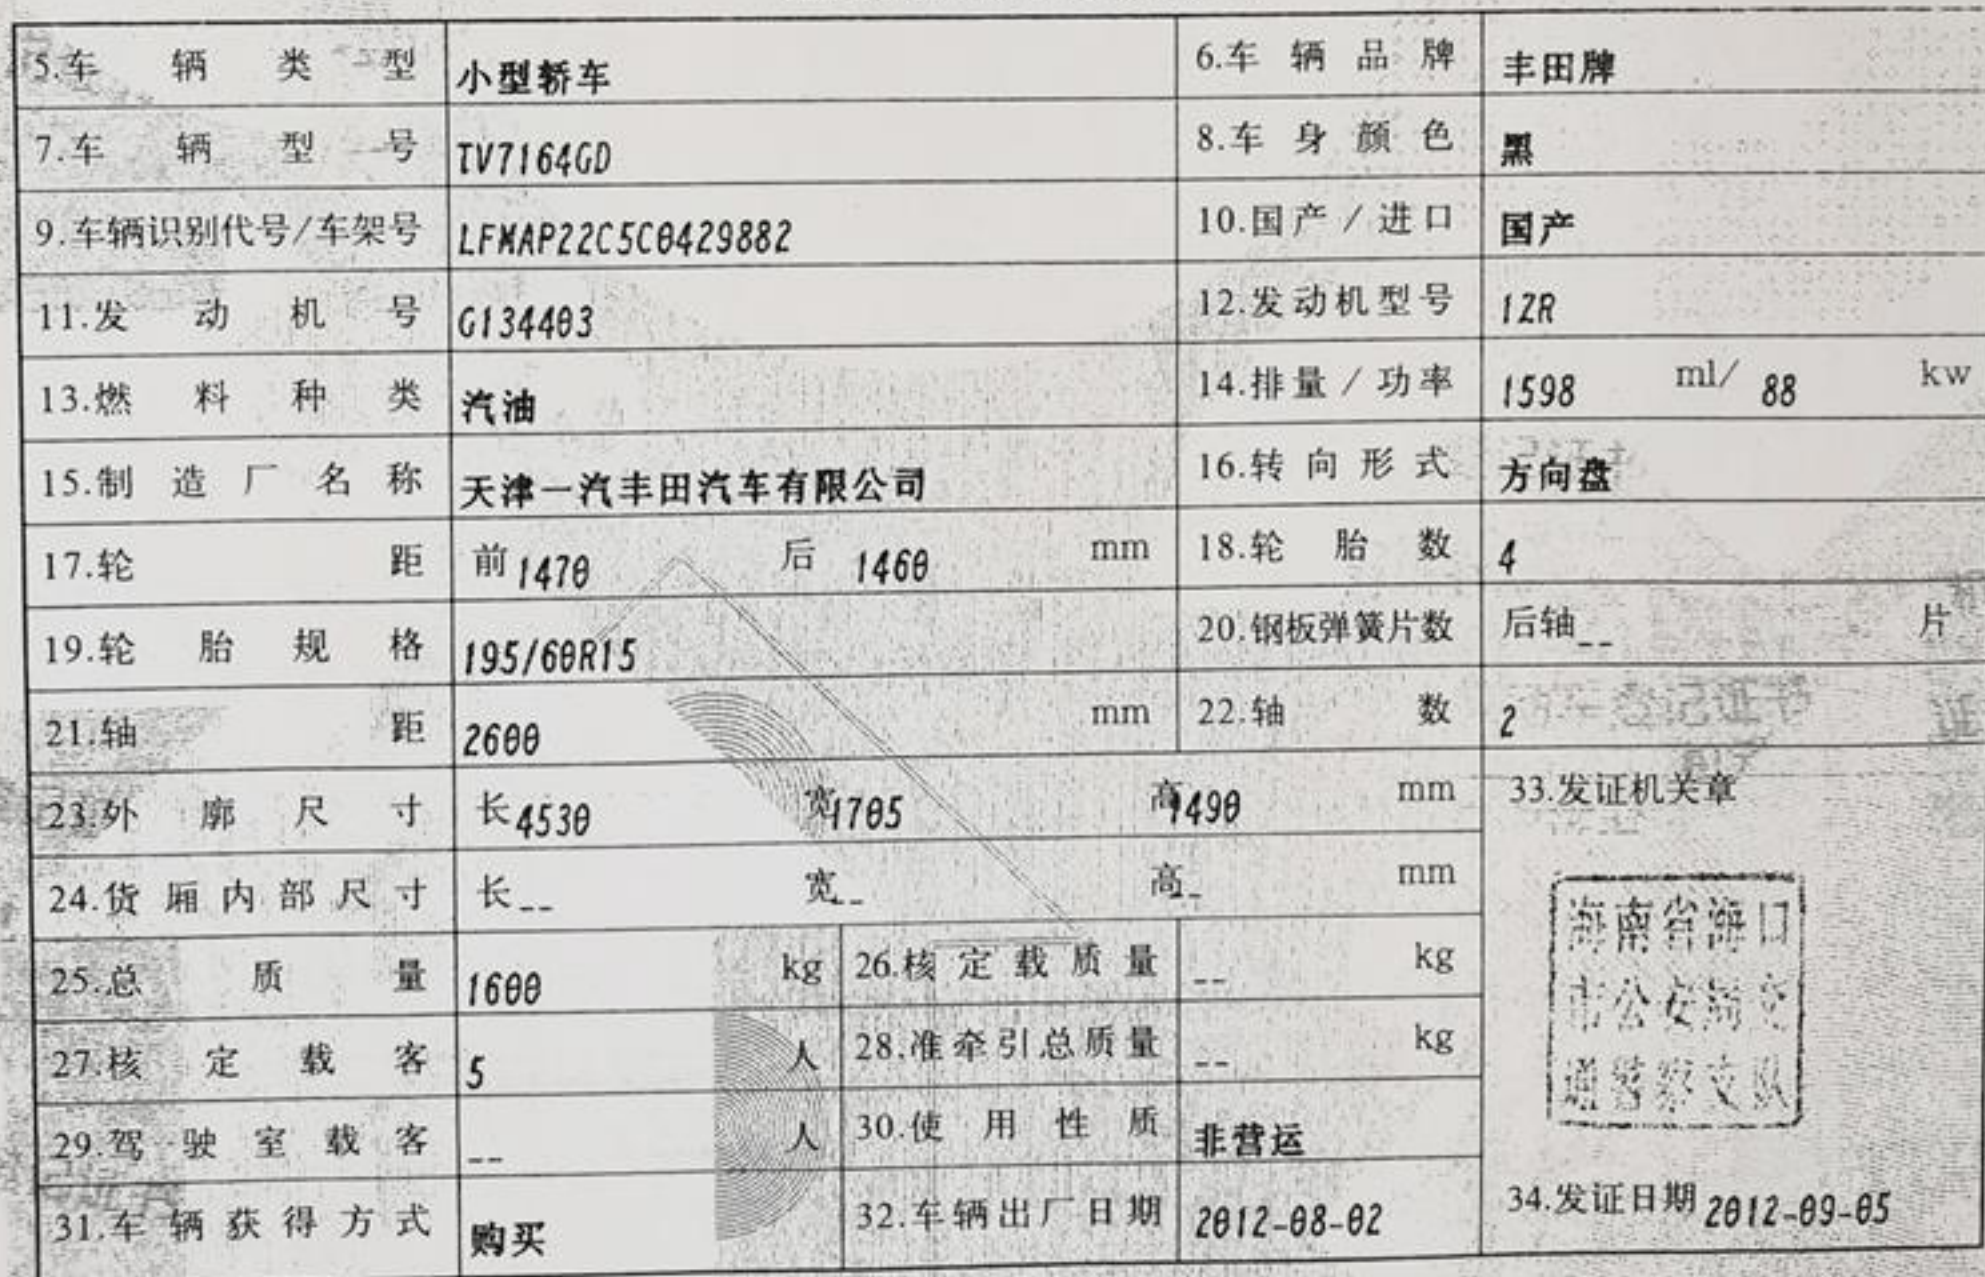 5.车辆类型 小型轿车 6.车辆品牌 丰田牌
7.车辆型号 TV7164GD 8.车身颜色 黑
9.车辆识别代号/车架号 LFMAP22C5C0429882 10.国产/进口 国产
11.发动机号 G134403 12.发动机型号 1ZR
13.燃料种类 汽油 14.排量/功率 1598 ml/ 88 kw
15.制造厂名称 天津一汽丰田汽车有限公司 16.转向形式 方向盘
17.轮距 前 1470 后 1460 mm 18.轮胎数 4
19.轮胎规格 195/60R15 20.钢板弹簧片数 后轴 -- 片
21.轴距 2600 mm 22.轴数 2
23.外廓尺寸 长 4530 宽 1705 高 1490 mm 33.发证机关章
24.货厢内部尺寸 长 -- 宽 -- 高 -- mm
海南省海口
市公安局交
通警察支队
25.总质量 1600 kg 26.核定载质量 -- kg
27.核定载客 5 人 28.准牵引总质量 -- kg
29.驾驶室载客 -- 人 30.使用性质 非营运
31.车辆获得方式 购买 32.车辆出厂日期 2012-08-02 34.发证日期 2012-09-05